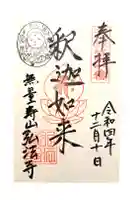 奉拝
釈迦如来
令和四年
十二月十日
無量寿山弘法寺